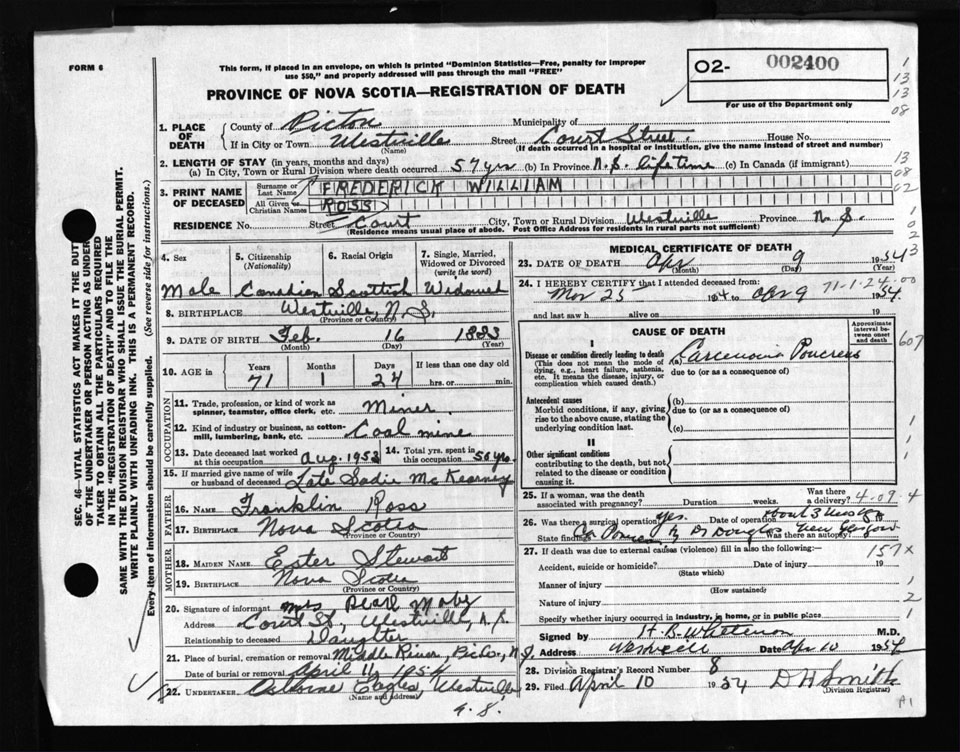 FORM 6
This form, if placed in an envelope, on which is printed "Dominion Statistics—Free, penalty for improper
use $50," and properly addressed will pass through the mail "FREE"
PROVINCE OF NOVA SCOTIA—REGISTRATION OF DEATH
02- 002400
For use of the Department only
1
13
13
08
1. PLACE OF DEATH
County of Pictou Municipality of
If in City or Town Westville Street Court Street. House No.
(Name) (If death occurred in a hospital or institution, give the name instead of street and number)
2. LENGTH OF STAY (in years, months and days)
(a) In City, Town or Rural Division where death occurred 57 yrs (b) In Province N.S. lifetime (c) In Canada (if immigrant)
13
08
3. PRINT NAME OF DECEASED
Surname or Last Name FREDERICK WILLIAM
02
All Given or Christian Names ROSS
RESIDENCE No. Street Court City, Town or Rural Division Westville Province N.S.
(Residence means usual place of abode. Post Office Address for residents in rural parts not sufficient)
1
0
2
SEC. 46—VITAL STATISTICS ACT MAKES IT THE DUTY
OF THE UNDERTAKER OR PERSON ACTING AS UNDER-
TAKER TO OBTAIN ALL THE PARTICULARS REQUIRED
IN THE "REGISTRATION OF DEATH" AND TO FILE THE
SAME WITH THE DIVISION REGISTRAR WHO SHALL ISSUE THE BURIAL PERMIT.
WRITE PLAINLY WITH UNFADING INK. THIS IS A PERMANENT RECORD.
Every item of information should be carefully supplied. (See reverse side for instructions.)
4. Sex
5. Citizenship (Nationality)
6. Racial Origin
7. Single, Married, Widowed or Divorced (write the word)
Male Canadian Scottish Widowed
8. BIRTHPLACE Westville, N.S.
(Province or Country)
9. DATE OF BIRTH Feb. 16 1883
(Month) (Day) (Year)
10. AGE in
Years Months Days If less than one day old
71 1 24 hrs. or min.
OCCUPATION
11. Trade, profession, or kind of work as
spinner, teamster, office clerk, etc. Miner.
12. Kind of industry or business, as cotton-
mill, lumbering, bank, etc. Coal mine
13. Date deceased last worked
at this occupation Aug. 1953
14. Total yrs. spent in
this occupation 50 yrs.
15. If married give name of wife
or husband of deceased Late Sadie McKearney
FATHER
16. Name Franklin Ross
17. Birthplace Nova Scotia
(Province or Country)
MOTHER
18. MAIDEN NAME Ester Stewart
19. BIRTHPLACE Nova Scotia
(Province or Country)
20. Signature of informant Mrs Pearl
Address Court St., Westville, N.S.
Relationship to deceased Daughter
21. Place of burial, cremation or removal Middle River, Pic Co., N.S.
Date of burial or removal April 11, 1954
22. UNDERTAKER Osborne Eagles, Westville
(Name and address)
N.S.
MEDICAL CERTIFICATE OF DEATH
23. DATE OF DEATH Apr 9 1954
(Month) (Day) (Year)
3
24. I HEREBY CERTIFY that I attended deceased from:
71-1-24-00
Nov 25 to Apr 9 1954.
and last saw h alive on 19
CAUSE OF DEATH
Approximate interval between onset and death
I
Disease or condition directly leading to death
(This does not mean the mode of
dying, e.g., heart failure, asthenia,
etc. It means the disease, injury, or
complication which caused death.)
(a) Carcenoma Pancreas
due to (or as a consequence of)
607
Antecedent causes
Morbid conditions, if any, giving
rise to the above cause, stating the
underlying condition last.
(b)
due to (or as a consequence of)
(c)
II
Other significant conditions
contributing to the death, but not
related to the disease or condition
causing it.
1
1
1
25. If a woman, was the death
associated with pregnancy? Duration weeks. Was there a delivery? 4-09-4
26. Was there a surgical operation? yes. Date of operation about 3 19
State findings Dr Douglas New Glasgow Was there an autopsy?
27. If death was due to external causes (violence) fill in also the following:—
157x
Accident, suicide or homicide? Date of injury 19
(State which)
Manner of injury
(How sustained)
1
Nature of injury
2
Specify whether injury occurred in industry, in home, or in public place
1
Signed by H. B. Whitman M.D.
Address Westville Date Apr 10 1954
28. Division Registrar's Record Number 8
29. Filed April 10 1954 D H Smith
(Division Registrar)
A1